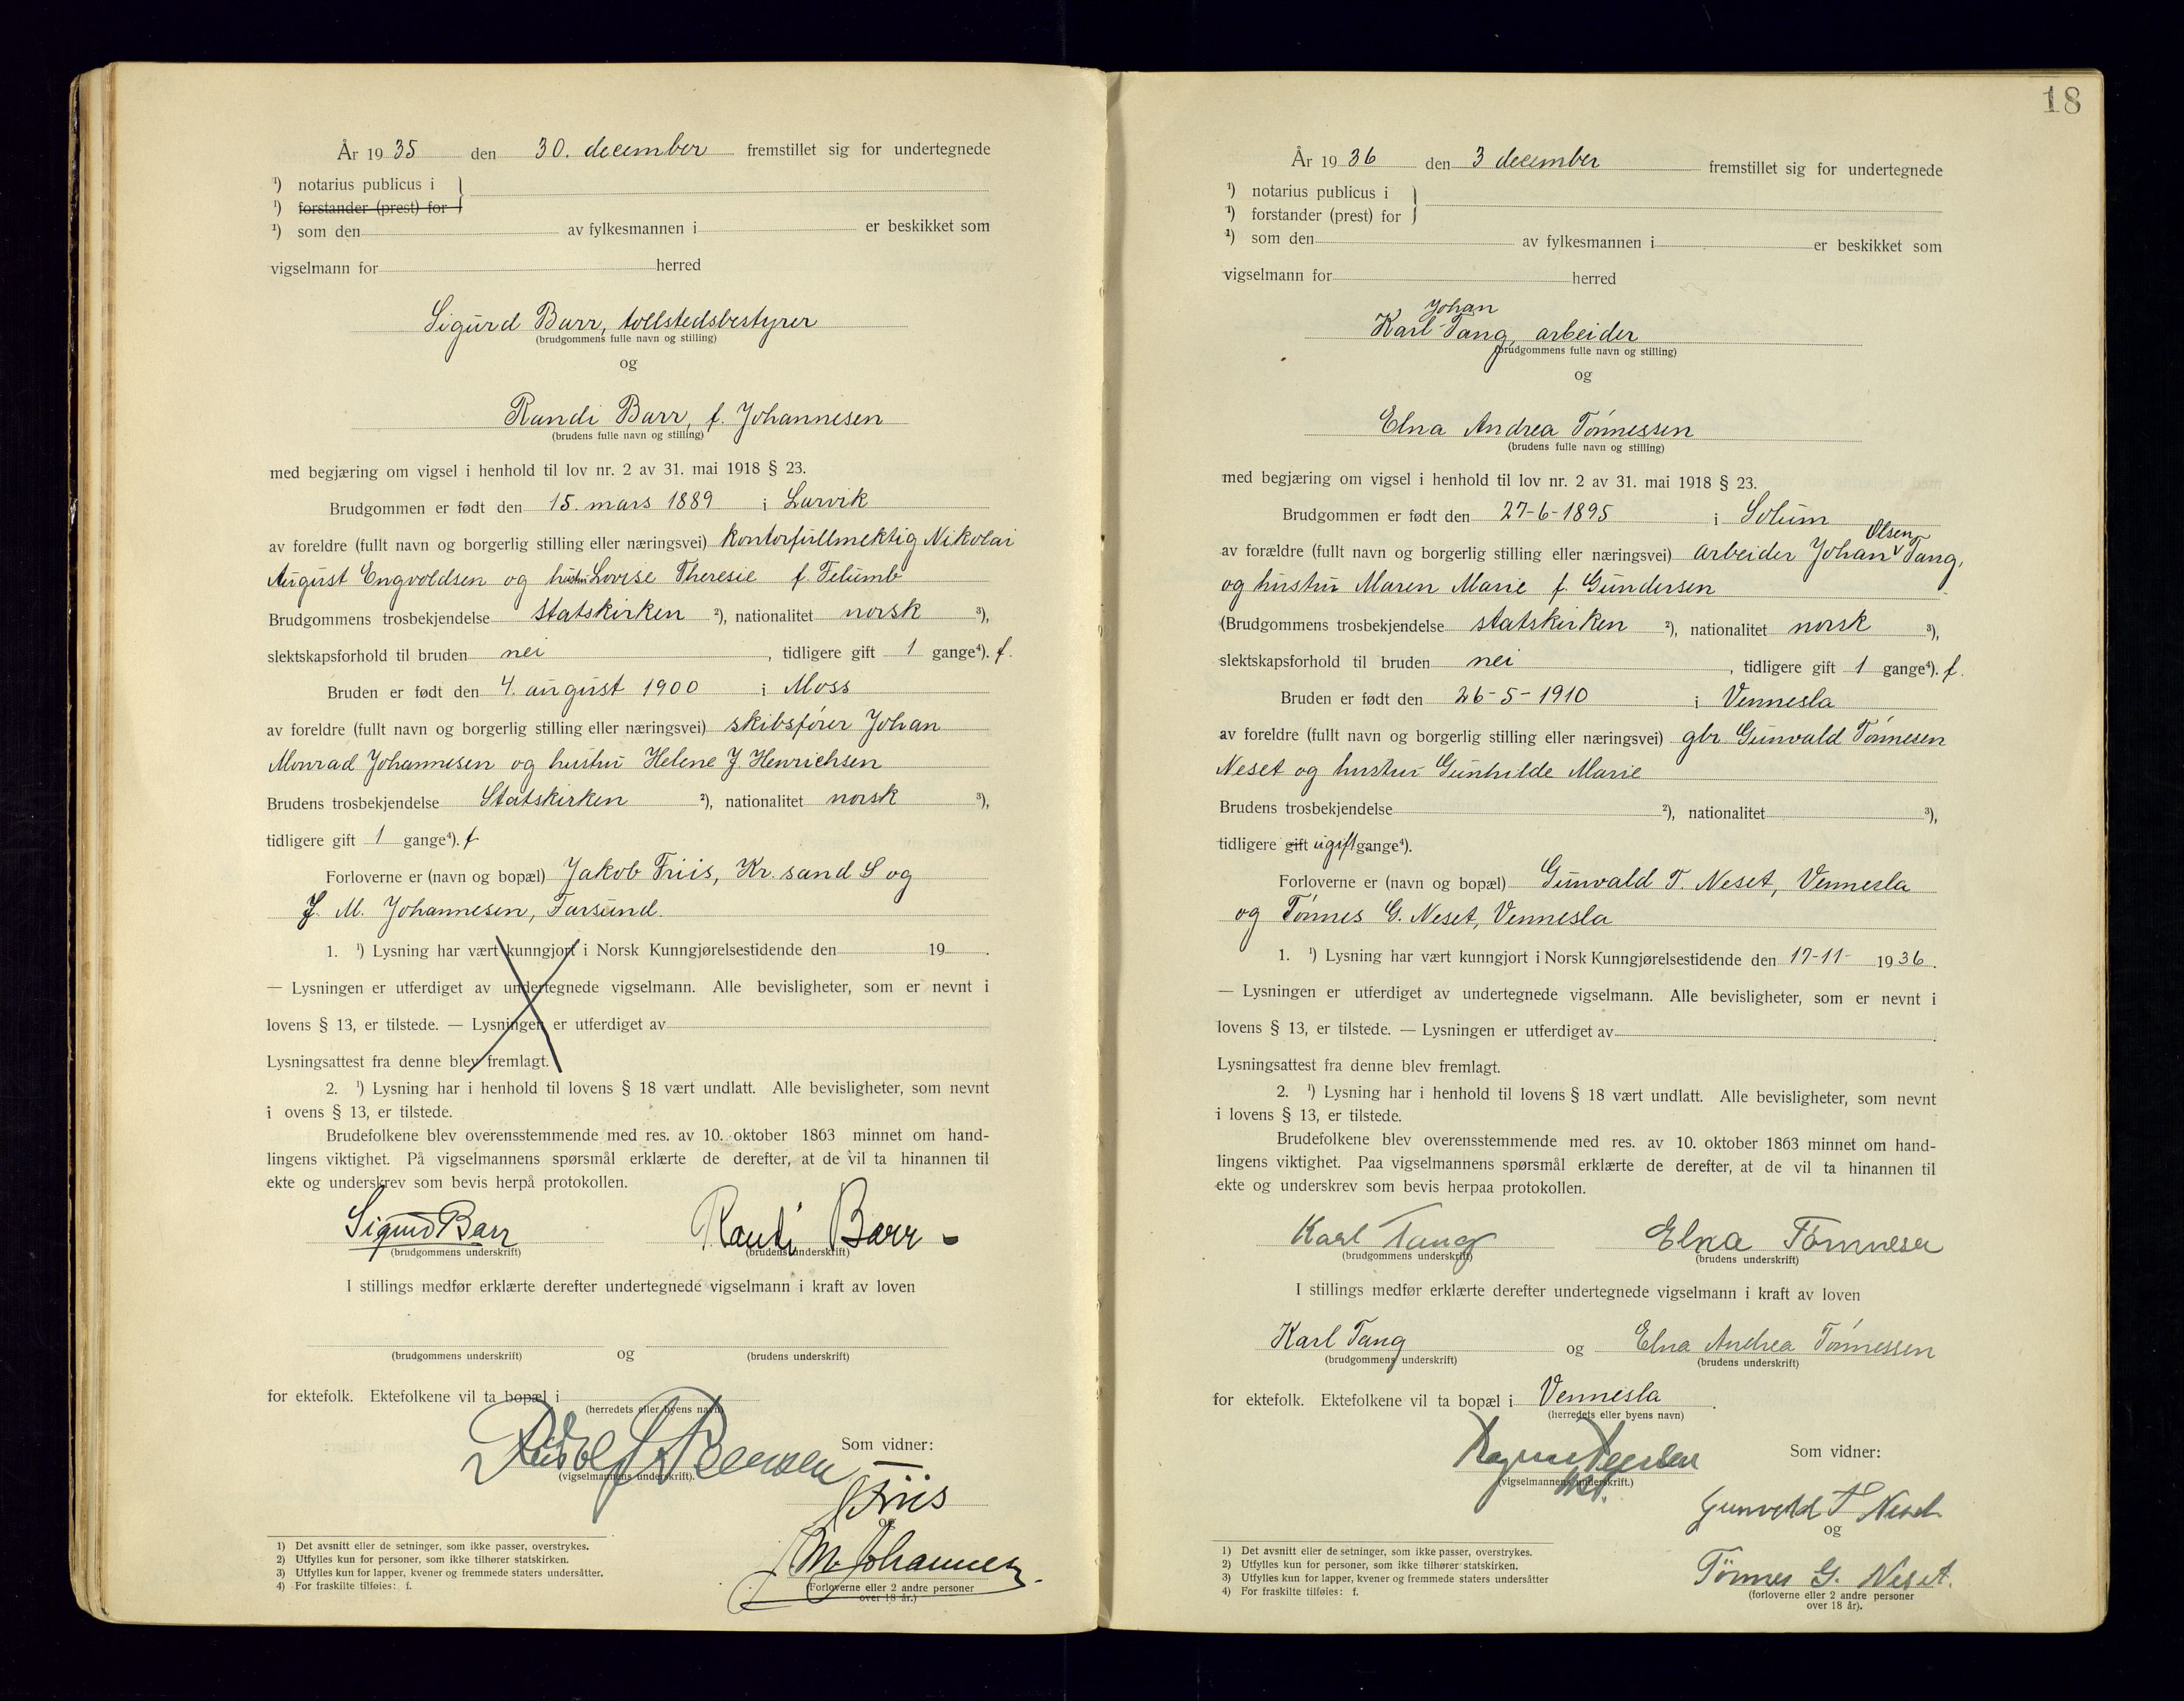 År 1935 den 30. december fremstillet sig for undertegnede
¹) notarius publicus i
¹) forstander (prest) for
¹) som den av fylkesmannen i er beskikket som
vigselmann for herred
Sigurd Barr, tollstedsbestyrer
(brudgommens fulle navn og stilling)
og
Randi Barr, f. Johannesen
(brudens fulle navn og stilling)
med begjæring om vigsel i henhold til lov nr. 2 av 31. mai 1918 § 23.
Brudgommen er født den 15. mars 1889 i Larvik
av foreldre (fullt navn og borgerlig stilling eller næringsvei) kontorfullmektig Nikolai
August Engvoldsen og hustru Lovise Theresie f. Felumb
Brudgommens trosbekjendelse statskirken ²), nationalitet norsk ³),
slektskapsforhold til bruden nei, tidligere gift 1 gange⁴). f.
Bruden er født den 4. august 1900 i Moss
av foreldre (fullt navn og borgerlig stilling eller næringsvei) skibsfører Johan
Monrad Johannesen og hustru Helene J Henrichsen
Brudens trosbekjendelse Statskirken ²), nationalitet norsk ³),
tidligere gift 1 gange⁴). f
Forloverne er (navn og bopæl) Jakob Friis, Kr. sand S og
J. M. Johannesen, Farsund.
1. ¹) Lysning har vært kunngjort i Norsk Kunngjørelsestidende den 19 .
— Lysningen er utferdiget av undertegnede vigselmann. Alle bevisligheter, som er nevnt i
lovens § 13, er tilstede. — Lysningen er utferdiget av
Lysningsattest fra denne blev fremlagt.
2. ¹) Lysning har i henhold til lovens § 18 vært undlatt. Alle bevisligheter, som nevnt
i ovens § 13, er tilstede.
Brudefolkene blev overensstemmende med res. av 10. oktober 1863 minnet om hand-
lingens viktighet. På vigselmannens spørsmål erklærte de derefter, at de vil ta hinannen til
ekte og underskrev som bevis herpå protokollen.
Sigurd Barr Randi Barr
(brudgommens underskrift) (brudens underskrift)
I stillings medfør erklærte derefter undertegnede vigselmann i kraft av loven
og
(brudgommens underskrift) (brudens underskrift)
for ektefolk. Ektefolkene vil ta bopæl i
(herredets eller byens navn)
Rudolf
Som vidner:
(vigselmannens underskrift).
J Friis
og
J M Johannesen
(Forloverne eller 2 andre personer
over 18 år.)
1) Det avsnitt eller de setninger, som ikke passer, overstrykes.
2) Utfylles kun for personer, som ikke tilhører statskirken.
3) Utfylles kun for lapper, kvener og fremmede staters undersåtter.
4) For fraskilte tilføies: f.
18
År 1936 den 3 december fremstillet sig for undertegnede
¹) notarius publicus i
¹) forstander (prest) for
¹) som den av fylkesmannen i er beskikket som
vigselmann for herred
Johan
Karl Tang, arbeider
(brudgommens fulle navn og stilling)
og
Elna Andrea Tønnessen
(brudens fulle navn og stilling)
med begjæring om vigsel i henhold til lov nr. 2 av 31. mai 1918 § 23.
Brudgommen er født den 27-6-1895 i Solum
Olsen
av forældre (fullt navn og borgerlig stilling eller næringsvei) arbeider Johan Tang,
og hustru Maren Marie f. Gundersen
(Brudgommens trosbekjendelse statskirken ²), nationalitet norsk ³),
slektskapsforhold til bruden nei, tidligere gift 1 gange⁴). f.
Bruden er født den 26-5-1910 i Vennesla
av foreldre (fullt navn og borgerlig stilling eller næringsvei) gbr. Gunvald Tønnesen
Neset og hustru Gunhilde Marie
Brudens trosbekjendelse ²), nationalitet ³),
tidligere gift ugift gange⁴).
Forloverne er (navn og bopæl) Gunvald T. Neset, Vennesla
og Tønnes G. Neset, Vennesla
1. ¹) Lysning har vært kunngjort i Norsk Kunngjørelsestidende den 17-11- 1936.
— Lysningen er utferdiget av undertegnede vigselmann. Alle bevisligheter, som er nevnt i
lovens § 13, er tilstede. — Lysningen er utferdiget av
Lysningsattest fra denne blev fremlagt.
2. ¹) Lysning har i henhold til lovens § 18 vært undlatt. Alle bevisligheter, som nevnt
i lovens § 13, er tilstede.
Brudefolkene blev overensstemmende med res. av 10. oktober 1863 minnet om hand-
lingens viktighet. Paa vigselmannens spørsmål erklærte de derefter, at de vil ta hinannen til
ekte og underskrev som bevis herpaa protokollen.
Karl Tang Elna Tønnesen
(brudgommens underskrift) (brudens underskrift)
I stillings medfør erklærte derefter undertegnede vigselmann i kraft av loven
Karl Tang og Elna Andrea Tønnessen
(brudgommens underskrift) (brudens underskrift)
for ektefolk. Ektefolkene vil ta bopæl i Vennesla.
(herredets eller byens navn)
Som vidner:
(vigselmannens underskrift.)
Gunvald T Neset
og
Tønnes G. Neset.
(forloverne eller 2 andre personer
over 18 år).
1) Det avsnitt eller de setninger, som ikke passer, overstrykes.
2) Utfylles kun for personer, som ikke tilhører statskirken.
3) Utfylles kun for lapper, kvener og fremmede staters undersåtter
4) For fraskilte tilføies: f.